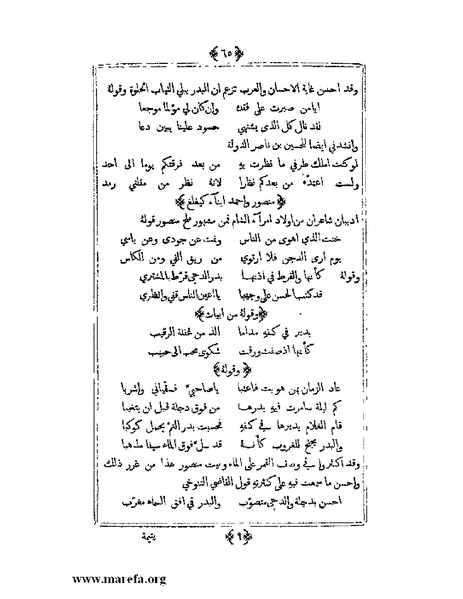 ﴿٦٥﴾
وقد احسن غاية الاحسان والعرب تزعم ان البدر يبلي الثياب وقوله
ايا من صبرت على فقده وان كان لي مؤلما موجعا
لقد نال كل الذي يشتهي حسود علينا بيين دعا
وانشدني ايضا للحسين بن ناصر الدولة
لو كنت املك طرفي ما نظرت به من بعد فرقتكم يوما الى احد
ولست اعتده من بعدكم نظرا لانه نظر من مقلتي رمد
﴿منصور واحمد ابنآء كيغلغ﴾
اديبان شاعران من اولاد امرآء الشام فمن مشهور ملح منصور قوله
خنت الذي اهوى من الناس ونمت عن جودي وعن باسي
يوم ارى الدجن فلا ارتوي من ريق الفي ومن الكاس
وقوله كأنها والقرط في اذنها بدر الدجى قرط بالمشتري
قد كتب الحسن على وجهها يا اعين الناس قفي وانظري
﴿وقوله من ابيات﴾
يدير في كفه مداما الذ من غفلة الرقيب
كأنها اذ صفت ورقت شكوى محب الى حبيب
﴿وقوله﴾
عاد الزمان بمن هويت فاعتبا يا صاحبيّ فسقياني واشربا
كم ليلة سامرت فيه بدرها من فوق دجلة قبل ان يتغيبا
قام الغلام يديرها في كفه فحسبت بدر التم يحمل كوكبا
والبدر يجنح للغروب كأنه قد سل فوق الماء سيفا مذهبا
وقد اكثروا في وصف القمر على الماء وبيت منصور هذا من غرر ذلك
واحسن ما سمعت فيه على كثرته قول القاضي التنوخي
احسن بدجلة والدجى متصوب والبدر في افق السماء مغرب
﴿٩﴾ يتيمة
www.marefa.org